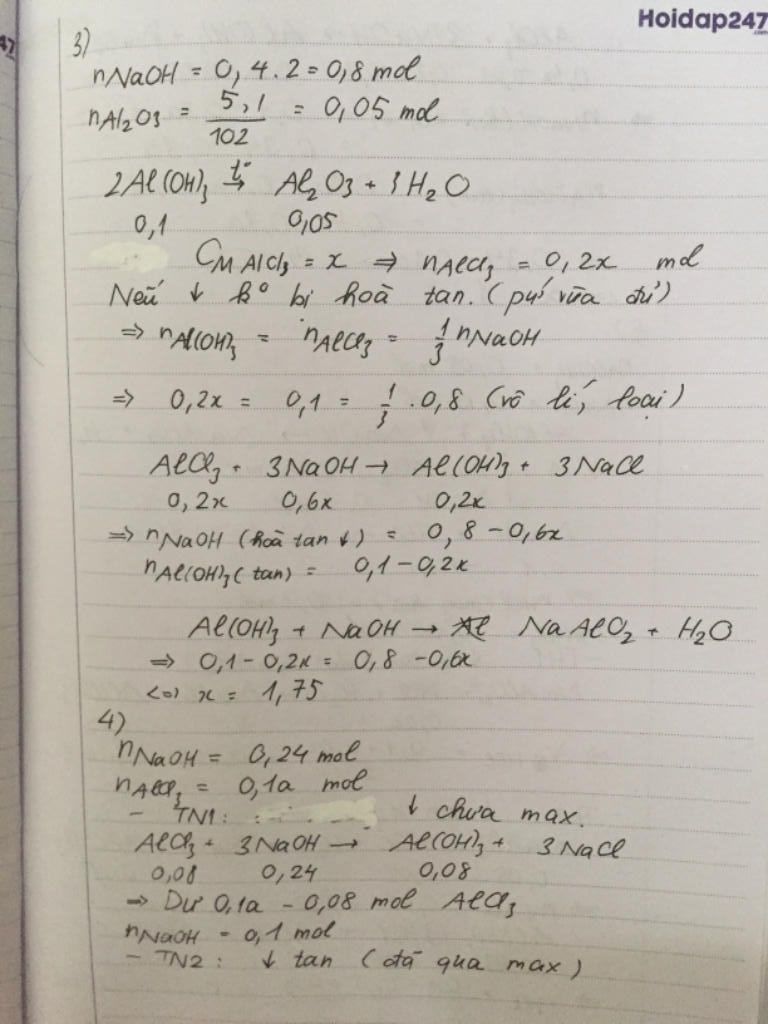 Hoidap247
.com
47
3)
nNaOH = 0,4 . 2 = 0,8 mol
nAl2O3 = 5,1/102 = 0,05 mol
2Al(OH)3 t°→ Al2O3 + 3H2O
0,1 0,05
CM AlCl3 = x ⇒ nAlCl3 = 0,2x mol
Nếu ↓ ko bị hoà tan. (pứ vừa đủ)
⇒ nAl(OH)3 = nAlCl3 = 1/3 nNaOH
⇒ 0,2x = 0,1 = 1/3 . 0,8 (vô lí, loại)
AlCl3 + 3NaOH → Al(OH)3 + 3NaCl
0,2x 0,6x 0,2x
⇒ nNaOH (hoà tan ↓) = 0,8 - 0,6x
nAl(OH)3 (tan) = 0,1 - 0,2x
Al(OH)3 + NaOH → NaAlO2 + H2O
⇒ 0,1 - 0,2x = 0,8 - 0,6x
<=> x = 1,75
4)
nNaOH = 0,24 mol
nAlCl3 = 0,1a mol
- TN1: ↓ chưa max.
AlCl3 + 3NaOH → Al(OH)3 + 3NaCl
0,08 0,24 0,08
⇒ Dư 0,1a - 0,08 mol AlCl3
nNaOH = 0,1 mol
- TN2: ↓ tan (đã qua max)